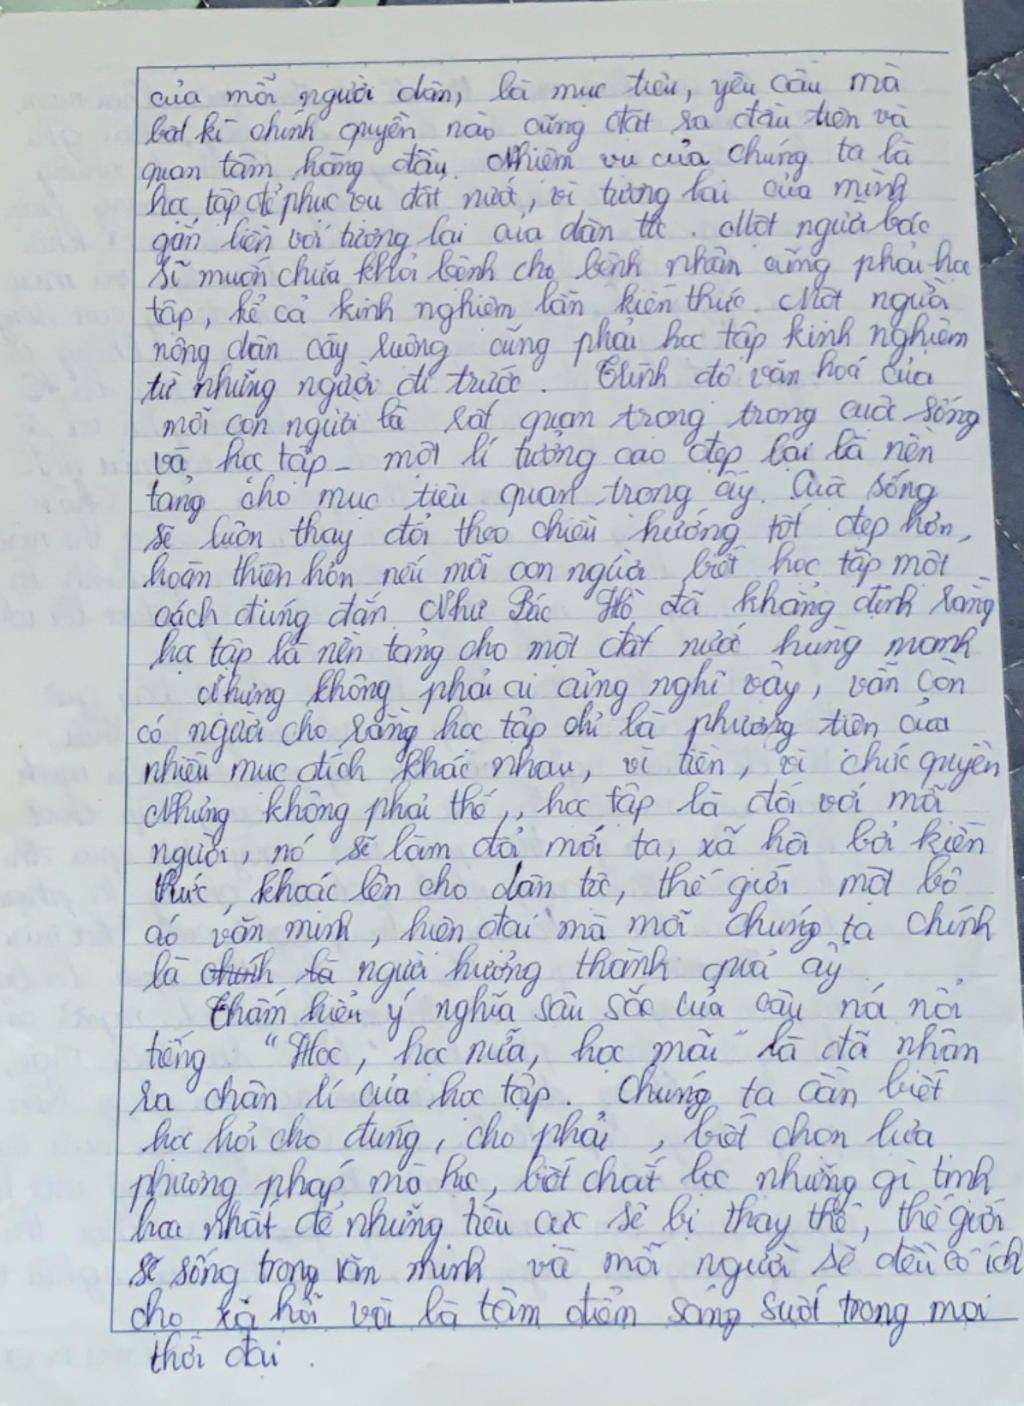 của mỗi người dân, là mục tiêu, yêu cầu mà
bất kì chính quyền nào cũng đặt ra đầu tiên và
quan tâm hàng đầu. Nhiệm vụ của chúng ta là
học tập để phục vụ đất nước, vì tương lai của mình
gắn liền với tương lai của dân tộc. Một người bác
sĩ muốn chữa khỏi bệnh cho bệnh nhân cũng phải học
tập, kể cả kinh nghiệm lẫn kiến thức. Một người
nông dân cày ruộng cũng phải học tập kinh nghiệm
từ những người đi trước. Trình độ văn hoá của
mỗi con người là rất quan trọng trong cuộc sống
và học tập - một lí tưởng cao đẹp lại là nền
tảng cho mục tiêu quan trọng ấy. Cuộc sống
sẽ luôn thay đổi theo chiều hướng tốt đẹp hơn,
hoàn thiện hơn nếu mỗi con người biết học tập một
cách đúng đắn Như Bác Hồ đã khẳng định rằng
học tập là nền tảng cho một đất nước hùng mạnh
Nhưng không phải ai cũng nghĩ vậy, vẫn còn
có người cho rằng học tập chỉ là phương tiện của
nhiều mục đích khác nhau, vì tiền, vì chức quyền
Nhưng không phải thế,, học tập là đối với mỗi
người, nó sẽ làm đổi mới ta, xã hội bởi kiến
thức, khoác lên cho dân tộc, thế giới một bộ
áo văn minh, hiện đại mà mỗi chúng ta chính
là chính là người hưởng thành quả ấy.
Thấm hiểu ý nghĩa sâu sắc của câu nói nổi
tiếng "Học, học nữa, học mãi" là đã nhận
ra chân lí của học tập. Chúng ta cần biết
học hỏi cho đúng, cho phải, biết chọn lựa
phương pháp mà học, biết chắt lọc những gì tinh
hoa nhất để những tiêu cực sẽ bị thay thế, thế giới
sẽ sống trong văn minh và mỗi người sẽ đều có ích
cho xã hội và là tâm điểm sáng suốt trong mọi
thời đại.